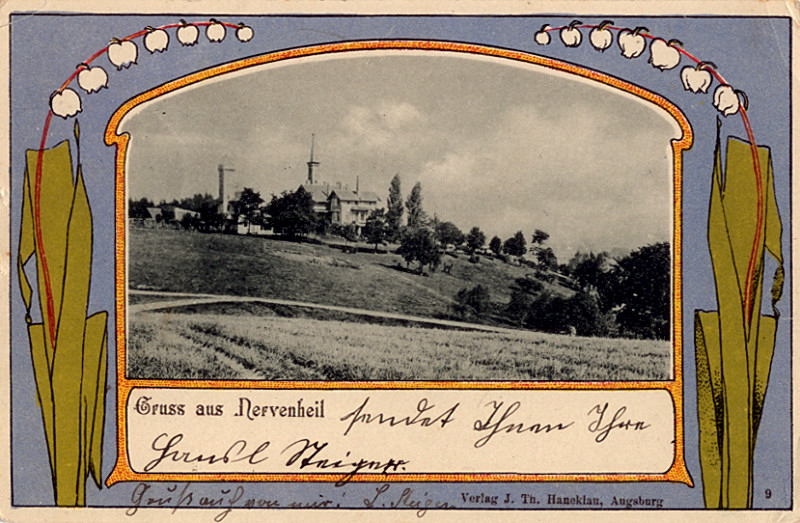 Gruss aus Nervenheil sendet Ihnen Ihre
Hansl Steiger.
Gruß auch von mir! L. Steiger
Verlag J. Th. Haneklau, Augsburg
9